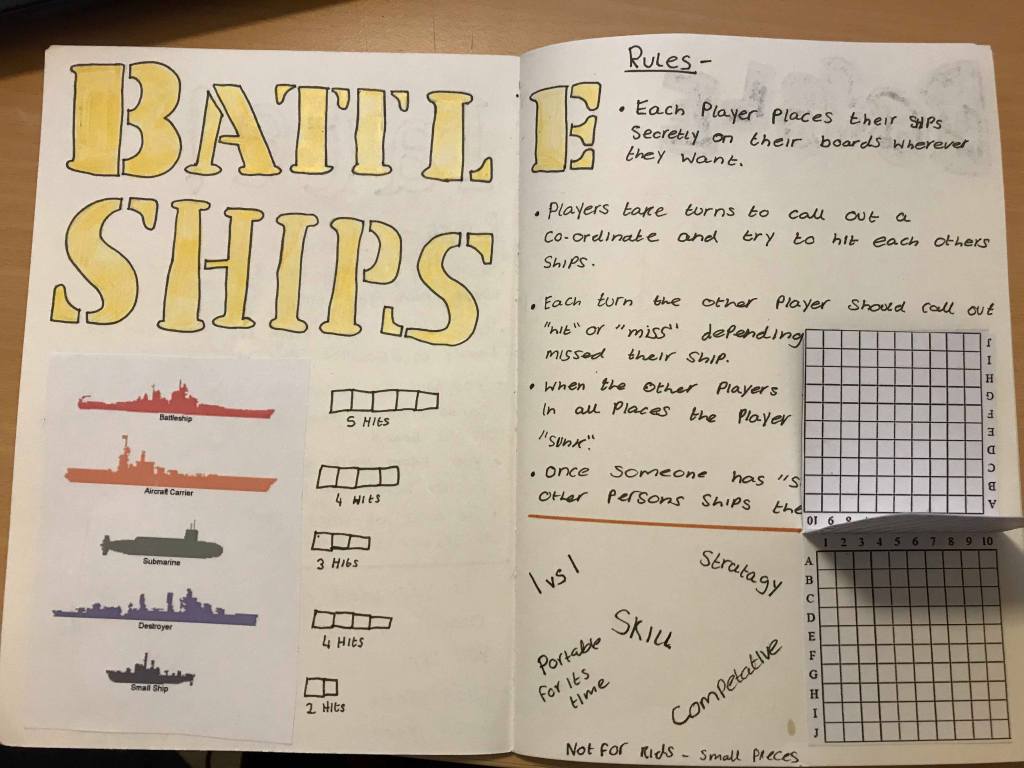 BATTLE
SHIPS
Battleship
5 Hits
Aircraft Carrier
4 Hits
Submarine
3 Hits
Destroyer
4 Hits
Small Ship
2 Hits
Rules -
• Each Player Places their SHIPs
Secretly on their boards wherever
they want.
• Players take turns to call out a
co-ordinate and try to hit each others
ships.
• Each turn the other Player should call out
"hit" or "miss" depending
missed their ship.
• When the other Players
in all Places the Player
"sunk".
• Once someone has "s
other Persons ships the
J
I
H
G
F
E
D
C
B
A
10 9 8
1 2 3 4 5 6 7 8 9 10
A
B
C
D
E
F
G
H
I
J
1 vs 1
Stratagy
Skill
Portable
for its
time
Competative
Not for Kids - small pieces